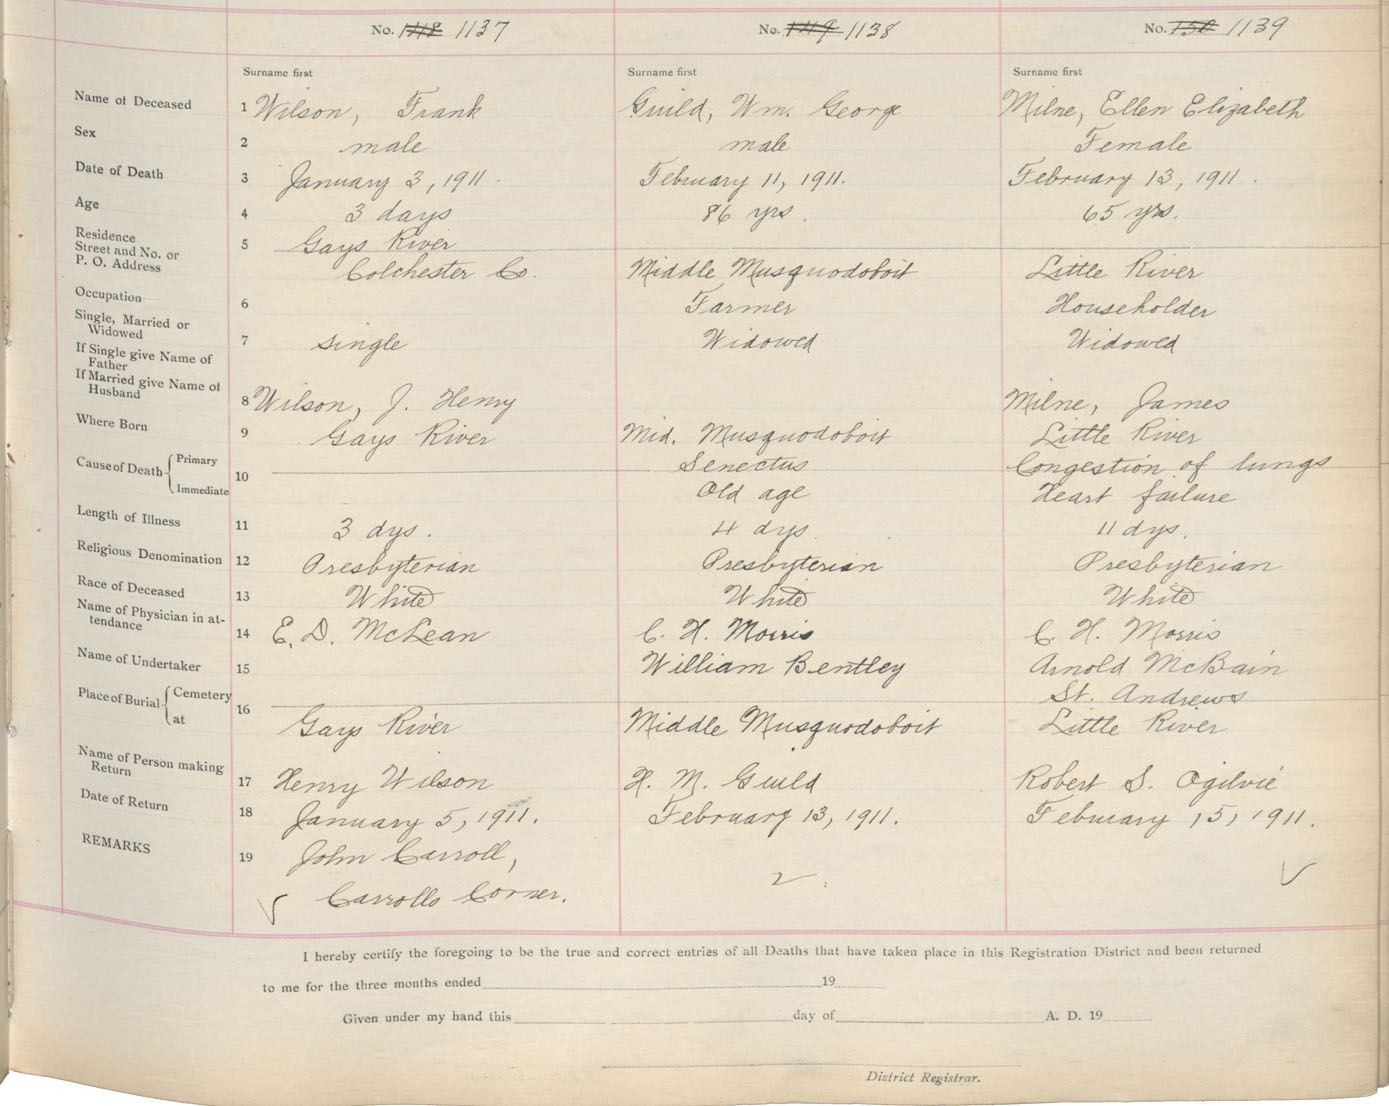 No. 148 1137 No. 149 1138 No. 150 1139
Surname first Surname first Surname first
Name of Deceased 1 Wilson, Frank Guild, Wm. George Milne, Ellen Elizabeth
Sex 2 male male Female
Date of Death 3 January 3, 1911. February 11, 1911. February 13, 1911.
Age 4 3 days 86 yrs. 65 yrs.
Residence 5 Gays River
Street and No. or
P. O. Address Colchester Co. Middle Musquodoboit Little River
Occupation 6 Farmer Householder
Single, Married or
Widowed 7 single Widowed Widowed
If Single give Name of
Father
If Married give Name of
Husband 8 Wilson, J. Henry Milne, James
Where Born 9 Gays River Mid. Musquodoboit Little River
Cause of Death Primary 10 Senectus Congestion of lungs
Immediate Old age Heart failure
Length of Illness 11 3 dys. 4 dys 11 dys.
Religious Denomination 12 Presbyterian Presbyterian Presbyterian
Race of Deceased 13 White White White
Name of Physician in at-
tendance 14 E. D. McLean C. H. Morris C. H. Morris
Name of Undertaker 15 William Bentley Arnold McBain
Place of Burial Cemetery 16 St. Andrews
at Gays River Middle Musquodoboit Little River
Name of Person making
Return 17 Henry Wilson H. M. Guild Robert S. Ogilvie
Date of Return 18 January 5, 1911. February 13, 1911. February 15, 1911.
REMARKS 19 John Carroll,
Carrolls Corner. 2
I hereby certify the foregoing to be the true and correct entries of all Deaths that have taken place in this Registration District and been returned
to me for the three months ended 19
Given under my hand this day of A. D. 19
District Registrar.